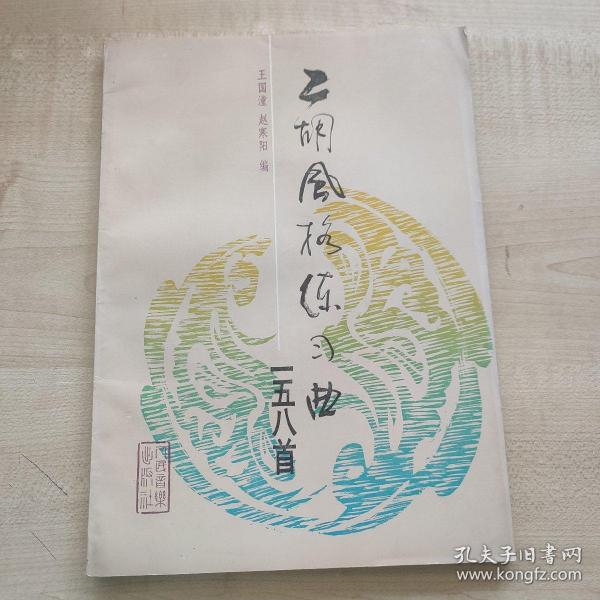 二胡風格练习曲
一五八首
王国潼 赵寒阳 编
人民音樂出版社
孔夫子旧書网
www.kongfz.com